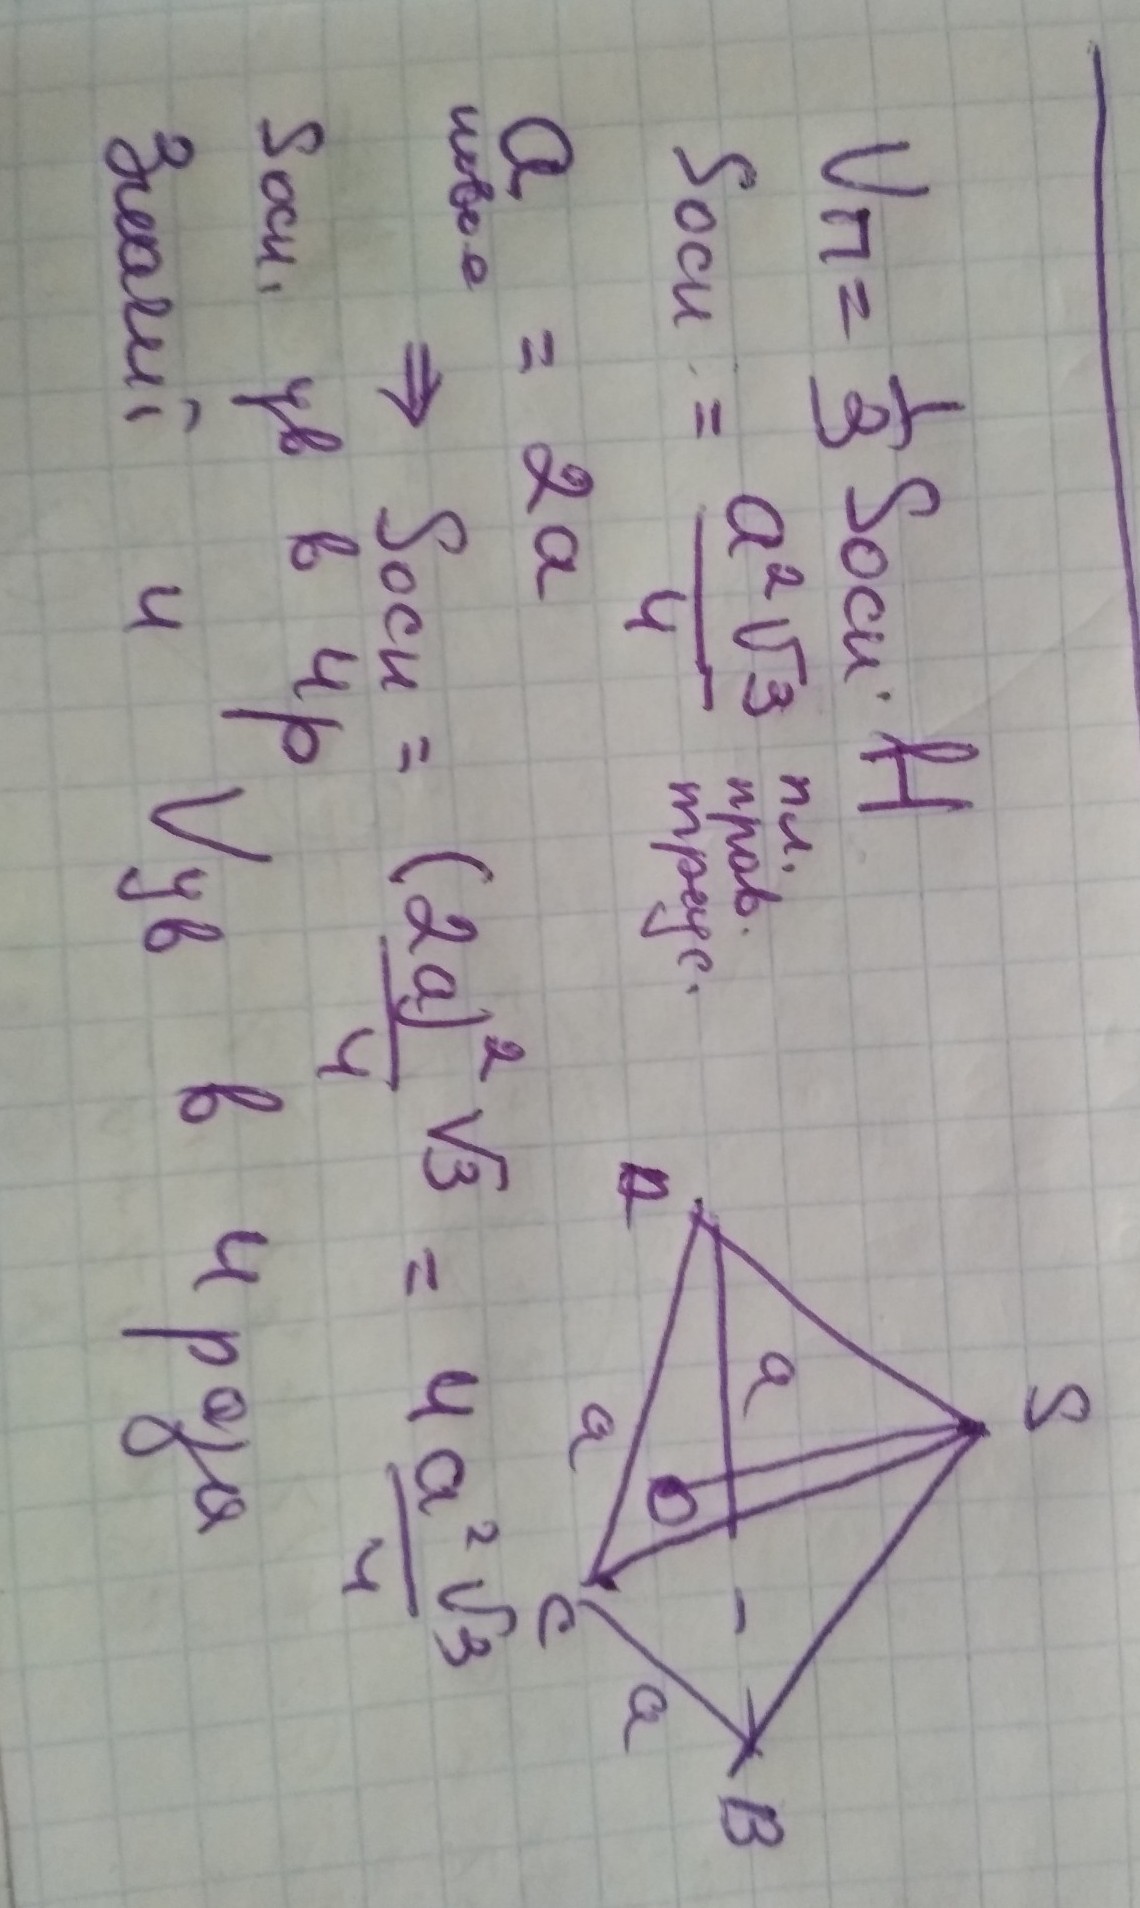 Vп = 1/3 Sосн. H
Sосн. = a²√3/4 пл. прав. треуг.
a = 2a
⇒ Sосн = (2a)²√3/4 = 4a²√3/4
Sосн. ув в 4р
Значит, и V ув в 4 раза
S
A
B
C
O
a
a
a